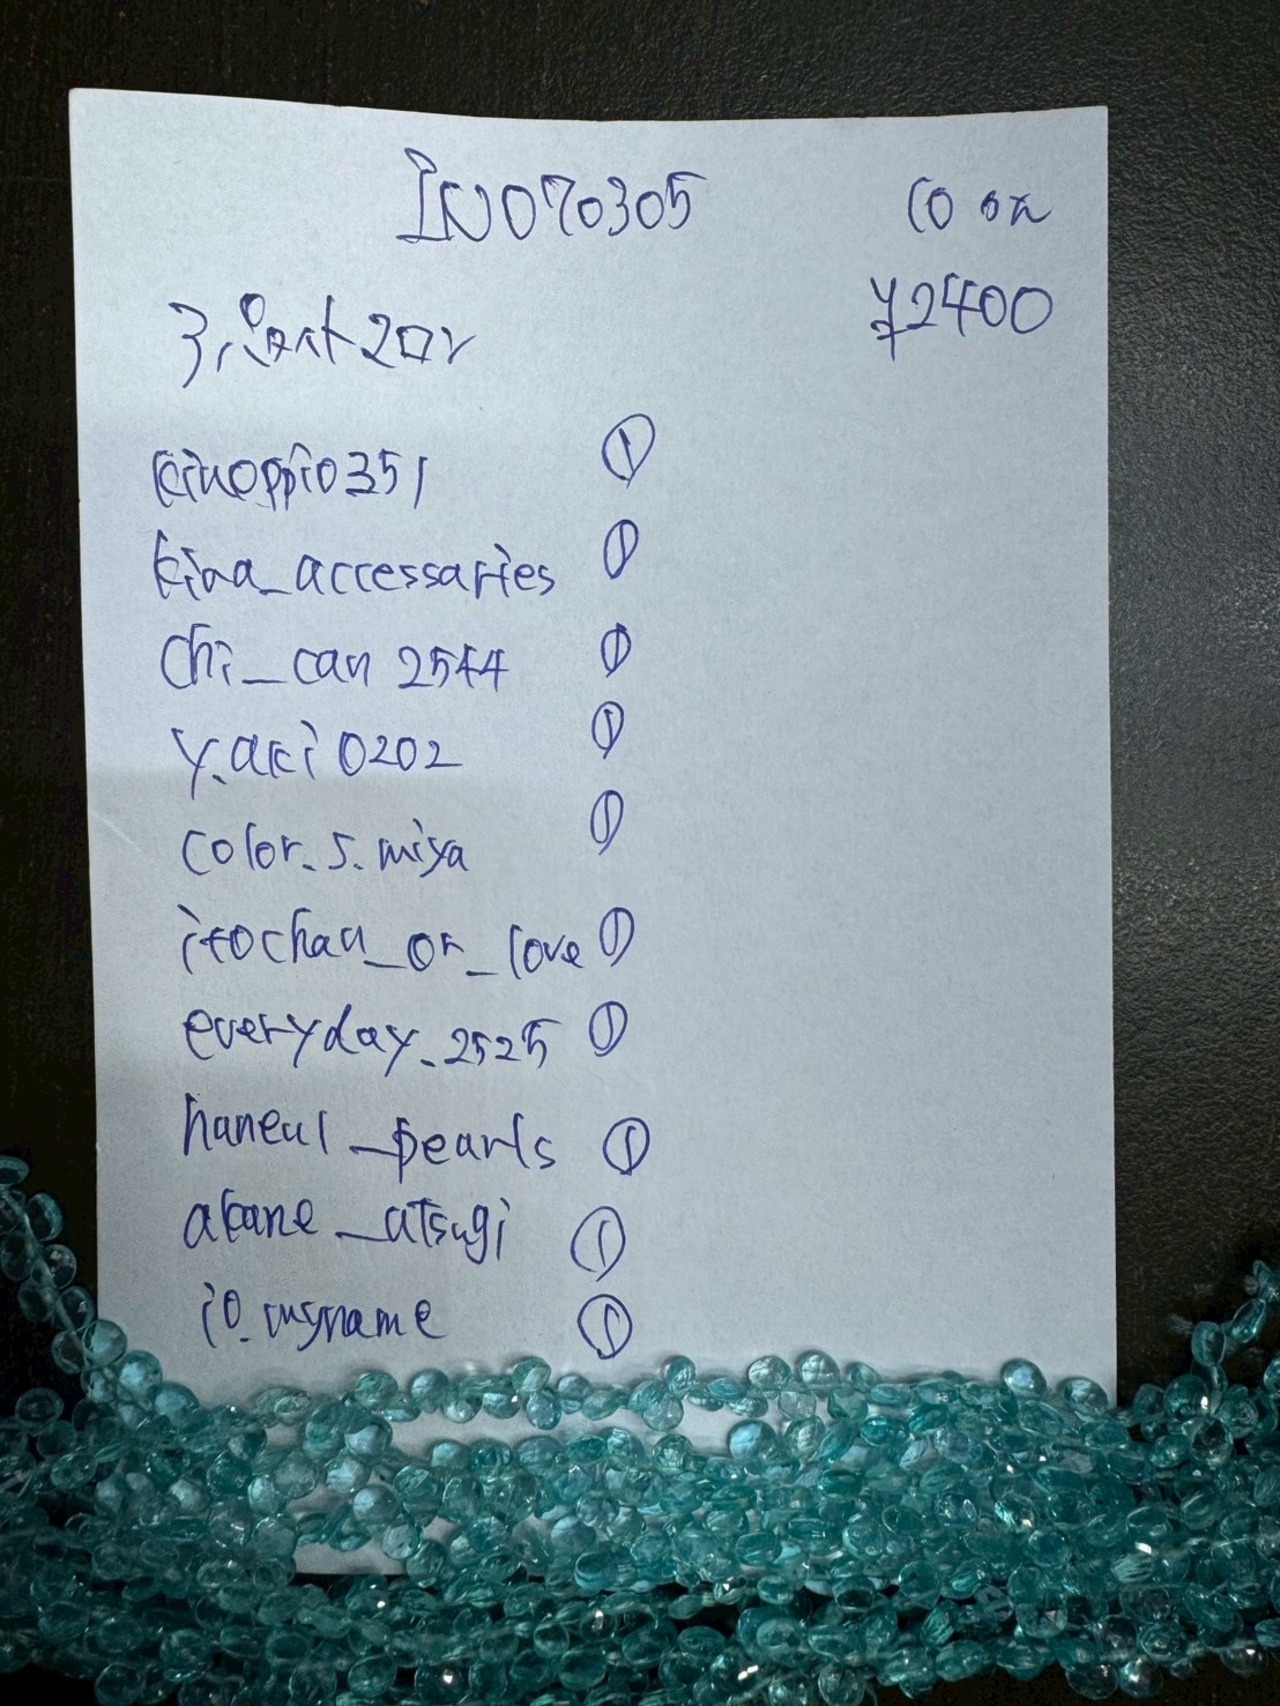 INO70305
¥2400
kinoppio351 ①
kina_accessaries ①
chi_can 2544 ①
y.aki 0202 ①
color.s.miya ①
itochan_on_love ①
everyday.2525 ①
haneul_pearls ①
akane_atsugi ①
io.myname ①